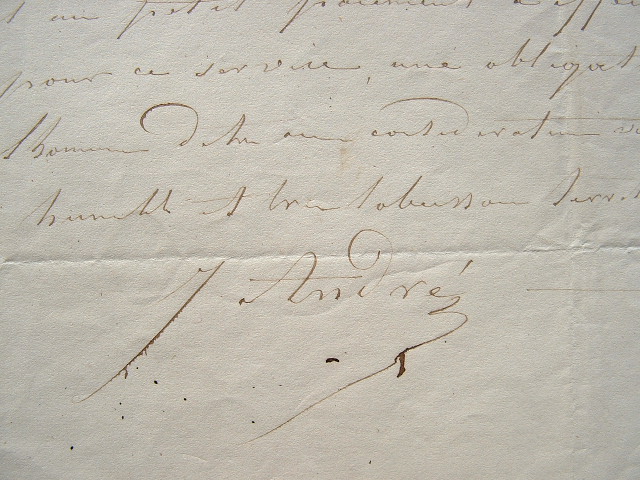 un petit paiement à
pour ce service, une obligat
l'honneur d'etre avec consideration vo
humble et tres obeissan Servit
J André